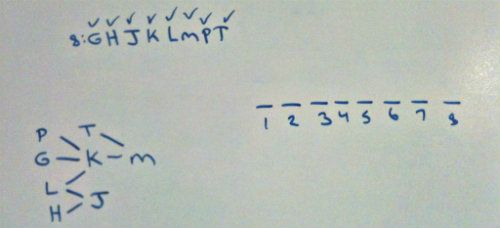 8:GHJKLMPT
1 2 3 4 5 6 7 8
P T
G K m
L
J
H